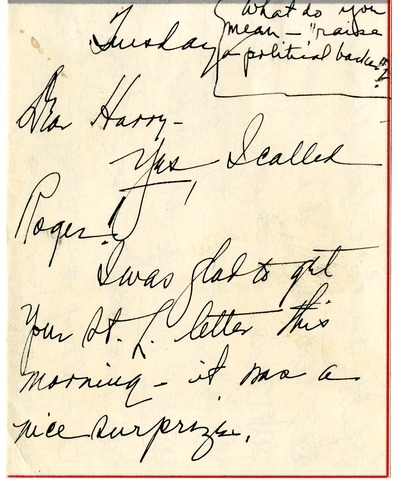 What do you
mean - "raise
a political backer"?
Tuesday
Dear Harry -
Yes, I called
Roger!
I was glad to get
your St. L. letter this
morning - it was a
nice surprize.